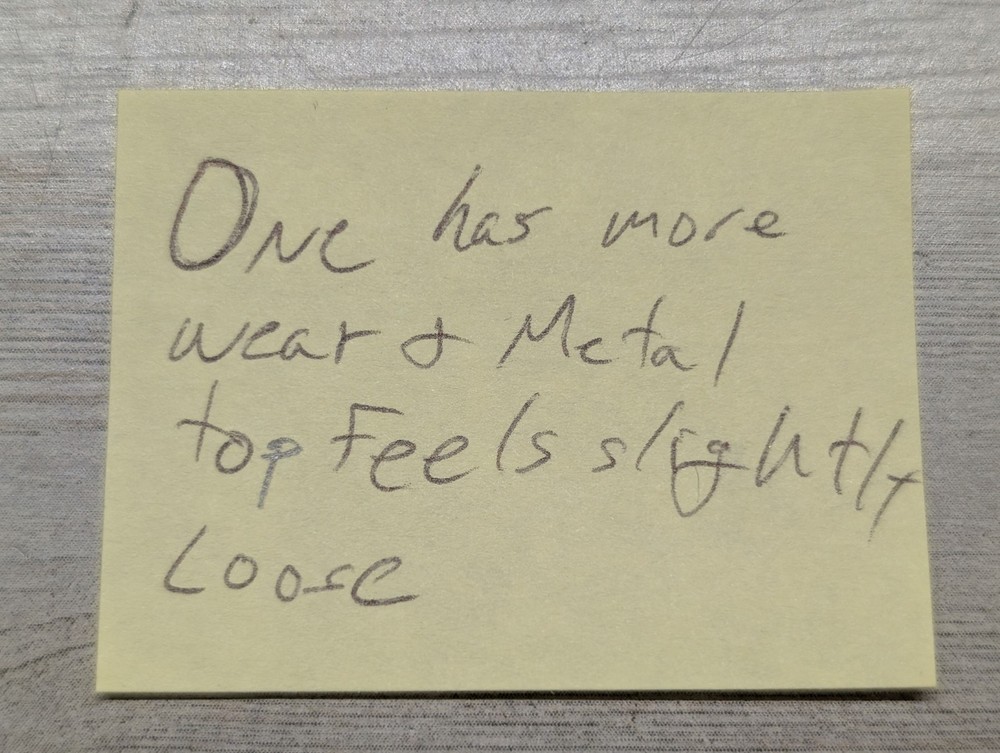 One has more
wear & Metal
top Feels slightly
Loose